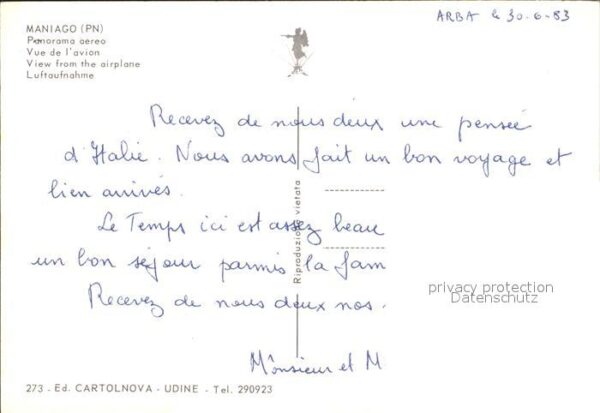 ARBA le 30-6-83
MANIAGO (PN)
Panorama aereo
Vue de l'avion
View from the airplane
Luftaufnahme
Recevez de nous deux une pensée
d'Italie. Nous avons fait un bon voyage et
bien arrivés.
Le Temps ici est assez beau
un bon séjour parmis la fam
Recevez de nous deux nos.
Monsieur et M
Riproduzione vietata
privacy protection
Datenschutz
273 - Ed. CARTOLNOVA - UDINE - Tel. 290923